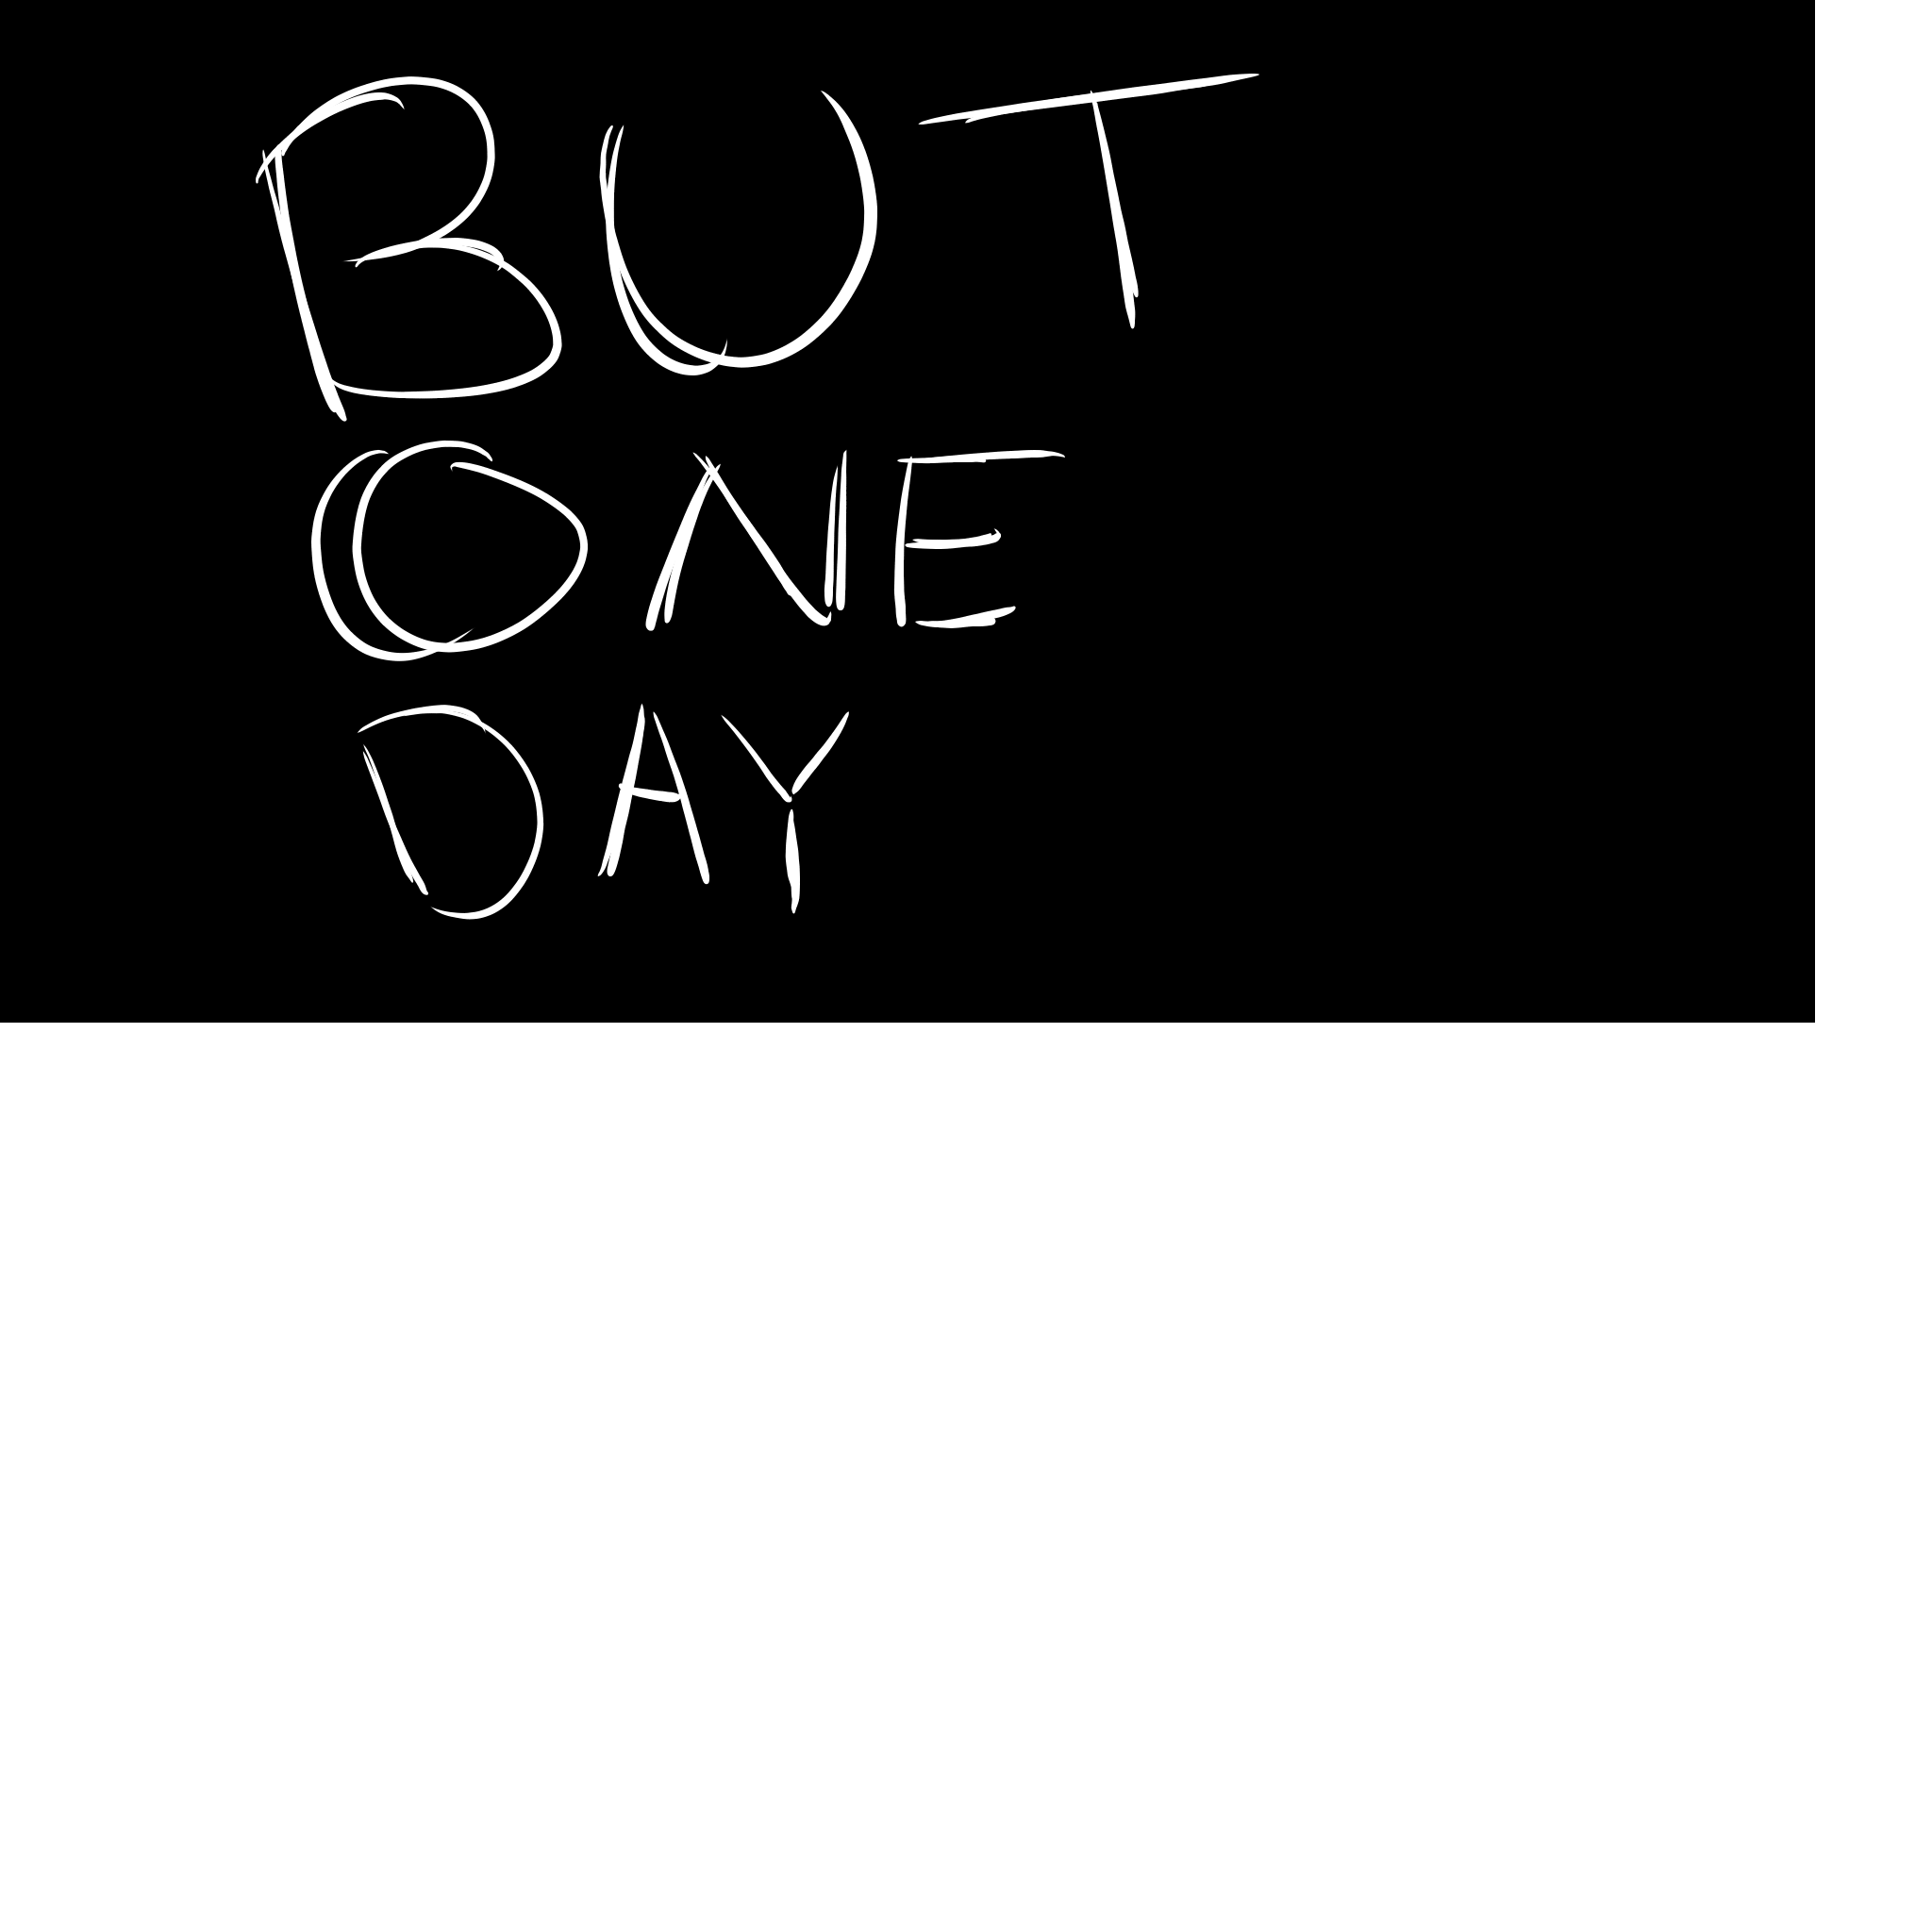 BUT
ONE
DAY